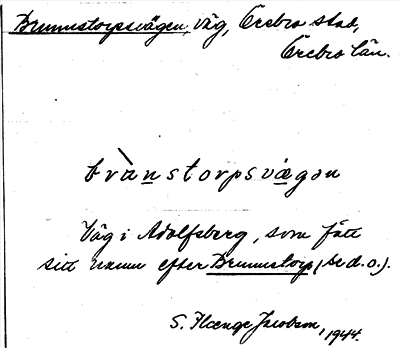 Brunnstorpsvägen, väg, Örebro stad,
Örebro län.
brùnstorpsvægən
Väg i Adolfsberg, som fått
sitt namn efter Brunnstorp (se d. o.).
S. Hænge Jacobson, 1944.